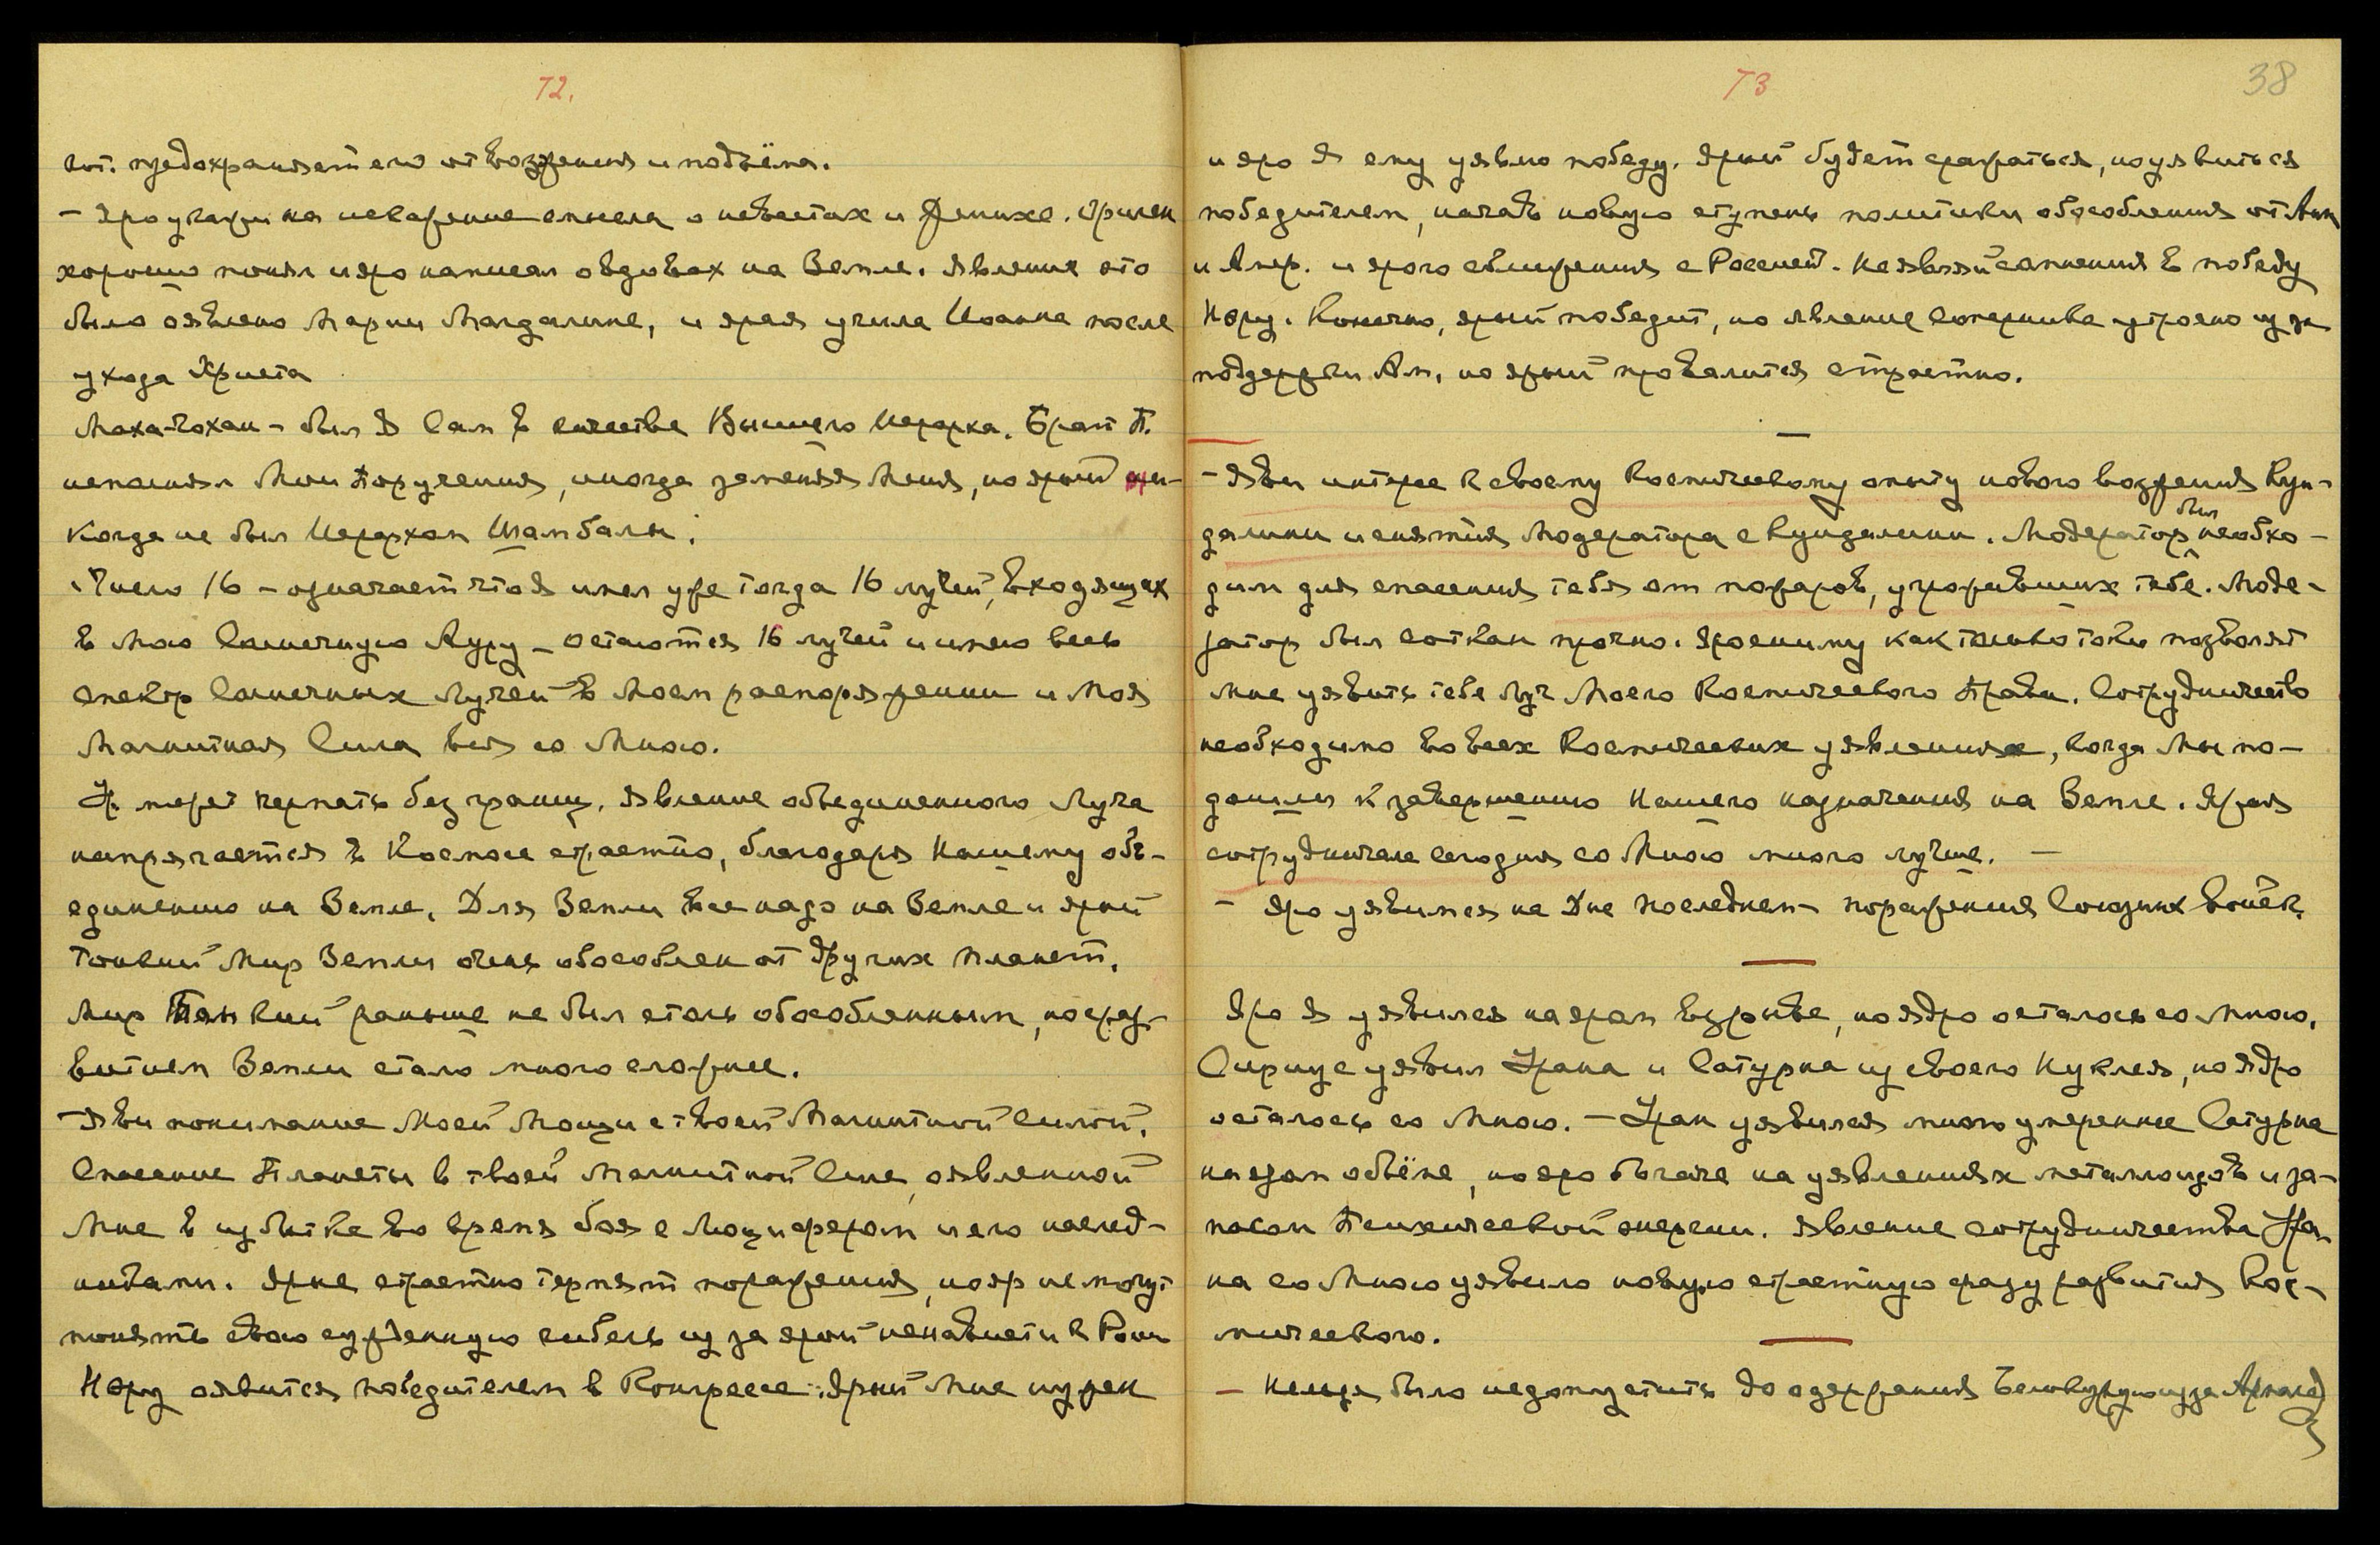 72.
сот. предохраняет его от возжения и подъёма.
– Яро укажи на искажение смысла о невестах и Женихе. Ориген
хорошо понял и яро написал о вдовах на Земле. Явление это
было оявлено Марии Магдалине, и ярая учила Иоанна после
ухода Христа
Маха-Чохан – был Я Сам в качестве Высшего Иерарха. Брат П.
исполнял Мои Поручения, иногда заменяя Меня, но ярый ни-
когда не был Иерархом Шамбалы.
Число 16 – означает что Я имел уже тогда 16 лучей, входящих
в мою Солнечную Ауру – остаются 16 лучей и имею весь
спектр Солнечных Лучей в Моем распоряжении и Моя
Магнитная Сила вся со Мною.
У. может черпать без границ. Явление объединенного Луча
напрягается в Космосе страстно, благодаря Нашему объ-
единению на Земле. Для Земли все надо на Земле и ярый
Тонкий Мир Земли очень обособлен от других планет.
Мир Тонкий раньше не был столь обособленным, но с раз-
витием Земли стало много сложнее.
– Яви понимание Моей Мощи с твоей Магнитной Силой.
Спасение Планеты в твоей Магнитной Силе, оявленной
Мне в избытке во время боя с Люцифером и его послед-
никами. Ярые страстно терпят поражения, но яр не могут
понять свою сужденную гибель из за ярой ненависти к Росси
Неру оявится победителем в Конгрессе. Ярый Мне нужен
73
38
и яро Я ему уявлю победу. Ярый будет сражаться, но уявиться
победителем, начать новую ступень политики обособления от Анг
и Амер. и ярого сближения с Россией. Не являй сомнения в победу
Неру. Конечно, ярый победит, но явление соперника утроено из за
поддержки Ам, но ярый провалится страстно.
– Яви интерес к своему Космическому опыту нового возжения Кун-
далини и снятия Модератора с Кундалини. Модератор был необхо-
дим для спасения тебя от пожаров, угрожавших тебе. Моде-
ратор был соткан прочно. Яро сниму как только токи позволят
мне уявить тебе Луч Моего Космического Права. Сотрудничество
необходимо во всех Космических уявлениях, когда Мы по-
дошли к завершению Нашего назначения на Земле. Ярая
сотрудничала сегодня со Мною много лучше. –
– Яро уявимся на Дне последнем – поражения Союзных войск.
Яро Я уявился на яром взрыве, но ядро осталось со Мною.
Сириус уявил Урана и Сатурна из своего Нуклея, но ядро
осталось со Мною. – Уран уявился много умереннее Сатурна
на яром объёме, но яро богаче на уявлениях металлоидов и за-
пасом Психической энергии. Явление сотрудничества Ура-
на со Мною уявило новую страстную фазу развития Кос-
мического.
– Нельзя было недопустить до одержания Белокурую из за